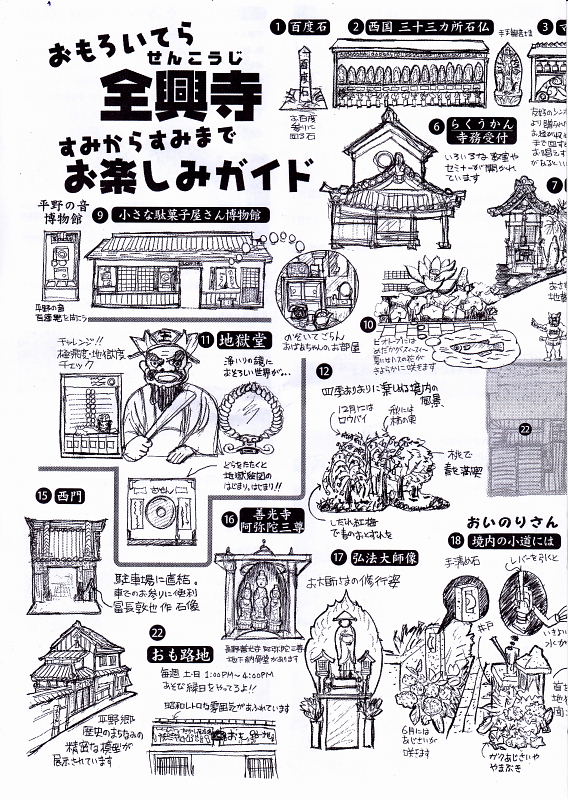 おもろいてら
せんこうじ
全興寺
すみからすみまで
お楽しみガイド
1 百度石
百度石
お百度
参りに
回る石
2 西国 三十三カ所石仏
3
6 らくうかん
寺務受付
いろいろな教室や
セミナーが開かれ
ています
7
平野の音
博物館
9 小さな駄菓子屋さん博物館
平野の音
のぞいてごらん
おばあちゃんのお部屋
10
11 地獄堂
チャレンジ!!
極楽度・地獄度
チェック
浄ハリの鏡に
おそろしい世界が…
どらをたたくと
地獄絵図の
はじまり、はじまり!!
12
四季おりおりに楽しめる境内の
風景
12月には
ロウバイ
秋には
柿の実
桃で
春を満喫
しだれ紅梅
で春のおとずれを
22
15 西門
駐車場に直結。
車でのお参りに便利
冨長敦也作 石像
16 善光寺
阿弥陀三尊
長野善光寺 阿弥陀三尊
地下納骨堂があります
17 弘法大師像
お大師さまの修行姿
おいのりさん
18 境内の小道には
手清め石
レバーを引くと
井戸
6月には
あじさいが
咲きます
ガクあじさいや
やまぶき
22
おも路地
毎週 土・日 1:00PM～4:00PM
あそび縁日をやってるよ!!
昭和レトロな雰囲気があふれています
平野郷
歴史のまちなみの
精密な模型が
展示されています